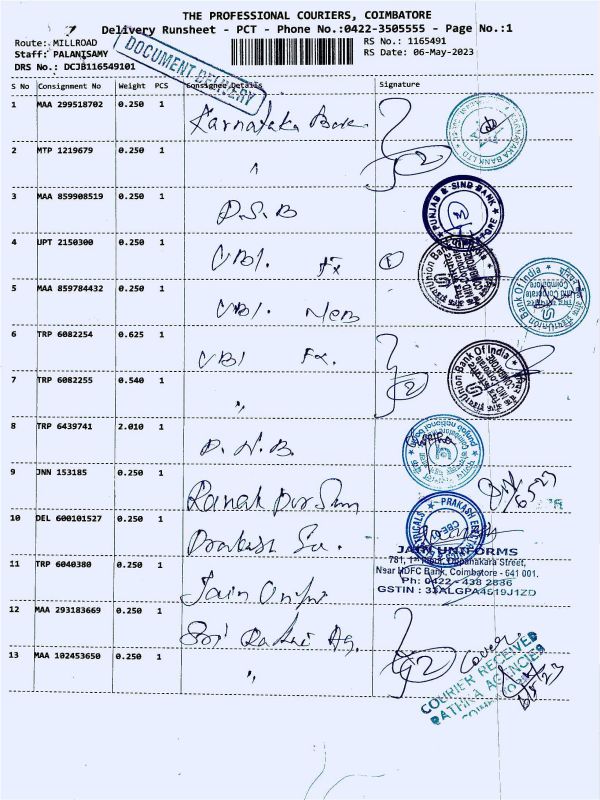 THE PROFESSIONAL COURIERS, COIMBATORE
Delivery Runsheet - PCT - Phone No.:0422-3505555 - Page No.:1
Route: MILLROAD
RS No.: 1165491
Staff: PALANISAMY
RS Date: 06-May-2023
DRS No.: DCJB116549101
DOCUMENT DELIVERY
S No Consignment No Weight PCS Consignee Details Signature
1 MAA 299518702 0.250 1 Karnataka Bank
KARNATAKA BANK LTD
2 MTP 1219679 0.250 1 "
2
3 MAA 859908519 0.250 1 P.S.B
PUNJAB & SIND BANK
4 UPT 2150300 0.250 1 UBI. Fx 1
Union Bank Of India
5 MAA 859784432 0.250 1 UBI.
Union Bank Of India
6 TRP 6082254 0.625 1 UBI Fx.
Union Bank Of India
7 TRP 6082255 0.540 1 "
2
8 TRP 6439741 2.010 1 P.N.B
punjab national bank
9 JNN 153185 0.250 1
10 DEL 600101527 0.250 1 Prakash
PRAKASH
11 TRP 6040380 0.250 1 Jain
JAIN UNIFORMS
781, 1st Floor, Oppanakara Street,
Near HDFC Bank, Coimbatore - 641 001.
Ph: 0422 - 438 2686
GSTIN : 33ALGPA4619J1ZD
12 MAA 293183669 0.250 1 Sri Rathi Ag.
13 MAA 102453650 0.250 1 "
2 Cover
COURIER RECEIVED
RATHI AGENCIES
6/5/23